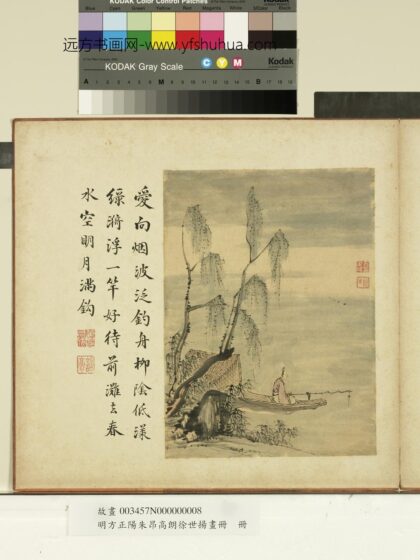 KODAK Color Control Patches
Blue Cyan Green Yellow Red Magenta White 3/Color Black
远方书画网-www.yfshuhua.com
KODAK Gray Scale
C Y M
Kodak
A 1 2 3 4 5 6 M 8 9 10 11 12 13 14 15 B 17 18 19
愛向烟波泛釣舟柳陰低漾
綠將浮一竿好待前灘去春
水空明月滿鈎
故畫 003457N000000008
明方正陽朱昂高朗徐世揚畫冊 冊